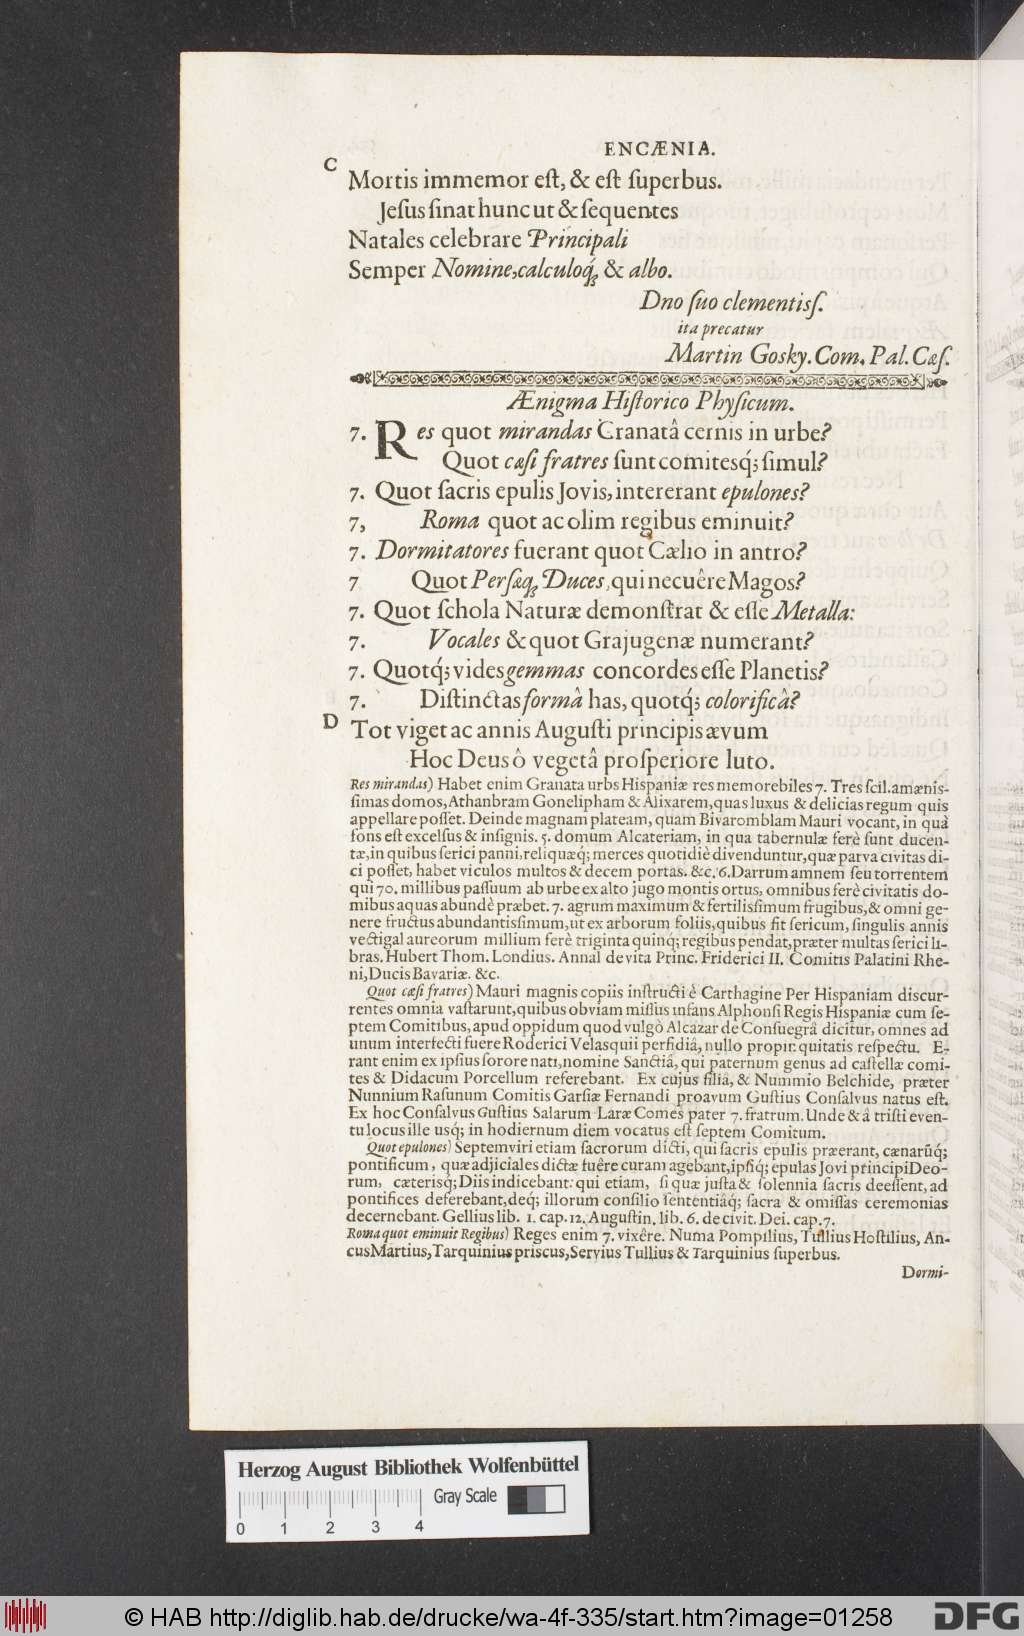 ENCÆNIA.
C
Mortis immemor eſt, & eſt ſuperbus.
Jeſus ſinat hunc ut & ſequentes
Natales celebrare Principali
Semper Nomine, calculoq́; & albo.
Dno ſuo clementiſſ.
ita precatur
Martin Gosky. Com. Pal. Cæſ.
Ænigma Hiſtorico Phyſicum.
7. Res quot mirandas Granatâ cernis in urbe?
Quot cæſi fratres ſunt comitesq́; ſimul?
7. Quot ſacris epulis Jovis, intererant epulones?
7, Roma quot ac olim regibus eminuit?
7. Dormitatores fuerant quot Cælio in antro?
7 Quot Perſæq; Duces, qui necuêre Magos?
7. Quot ſchola Naturæ demonſtrat & eſſe Metalla:
7. Vocales & quot Grajugenæ numerant?
7. Quotq́; vides gemmas concordes eſſe Planetis?
7. Diſtinctas formâ has, quotq; colorificâ?
D Tot viget ac annis Auguſti principis ævum
Hoc Deus ô vegetâ proſperiore luto.
Res mirandas) Habet enim Granata urbs Hiſpaniæ res memorebiles 7. Tres ſcil. amænis-
ſimas domos, Athanbram Gonelipham & Alixarem, quas luxus & delicias regum quis
appellare poſſet. Deinde magnam plateam, quam Bivaromblam Mauri vocant, in quâ
fons eſt excelſus & inſignis. 5. domum Alcateriam, in qua tabernulæ ferè ſunt ducen-
tæ, in quibus ſerici panni, reliquæq́; merces quotidiè divenduntur, quæ parva civitas di-
ci poſſet, habet viculos multos & decem portas. &c. 6. Darrum amnem ſeu torrentem
qui 70. millibus paſſuum ab urbe ex alto jugo montis ortus, omnibus ferè civitatis do-
mibus aquas abundè præbet. 7. agrum maximum & fertiliſſimum frugibus, & omni ge-
nere fructus abundantiſſimum, ut ex arborum foliis, quibus fit ſericum, ſingulis annis
vectigal aureorum millium ferè triginta quinq; regibus pendat, præter multas ſerici li-
bras. Hubert Thom. Londius. Annal de vita Princ. Friderici II. Comitis Palatini Rhe-
ni, Ducis Bavariæ. &c.
Quot cæſi fratres) Mauri magnis copiis inſtructi è Carthagine Per Hiſpaniam diſcur-
rentes omnia vaſtarunt, quibus obviam miſſus infans Alphonſi Regis Hiſpaniæ cum ſe-
ptem Comitibus, apud oppidum quod vulgò Alcazar de Conſuegrâ dicitur, omnes ad
unum interfecti fuere Roderici Velasquii perfidiâ, nullo propinquitatis reſpectu. E-
rant enim ex ipſius ſorore nati, nomine Sanctiâ, qui paternum genus ad caſtellæ comi-
tes & Didacum Porcellum referebant. Ex cujus filiâ, & Nummio Belchide, præter
Nunnium Raſunum Comitis Garſiæ Fernandi proavum Guſtius Conſalvus natus eſt.
Ex hoc Conſalvus Guſtius Salarum Laræ Comes pater 7. fratrum. Unde & â triſti even-
tu locus ille usq; in hodiernum diem vocatus eſt ſeptem Comitum.
Quot epulones) Septemviri etiam ſacrorum dicti, qui ſacris epulis præerant, cænarūq;
pontificum, quæ adjiciales dictæ fuêre curam agebant, ipſiq; epulas Jovi principi Deo-
rum, cæterisq; Diis indicebant: qui etiam, ſi quæ juſta & ſolennia ſacris deeſſent, ad
pontifices deferebant, deq; illorum conſilio ſententiâq; ſacra & omiſſas ceremonias
decernebant. Gellius lib. 1. cap. 12. Auguſtin. lib. 6. de civit. Dei. cap. 7.
Roma quot eminuit Regibus) Reges enim 7. vixêre. Numa Pompilius, Tullius Hoſtilius, An-
cus Martius, Tarquinius priscus, Servius Tullius & Tarquinius ſuperbus.
Dormi-
Herzog August Bibliothek Wolfenbüttel
Gray Scale
0 1 2 3 4
© HAB http://diglib.hab.de/drucke/wa-4f-335/start.htm?image=01258
DFG